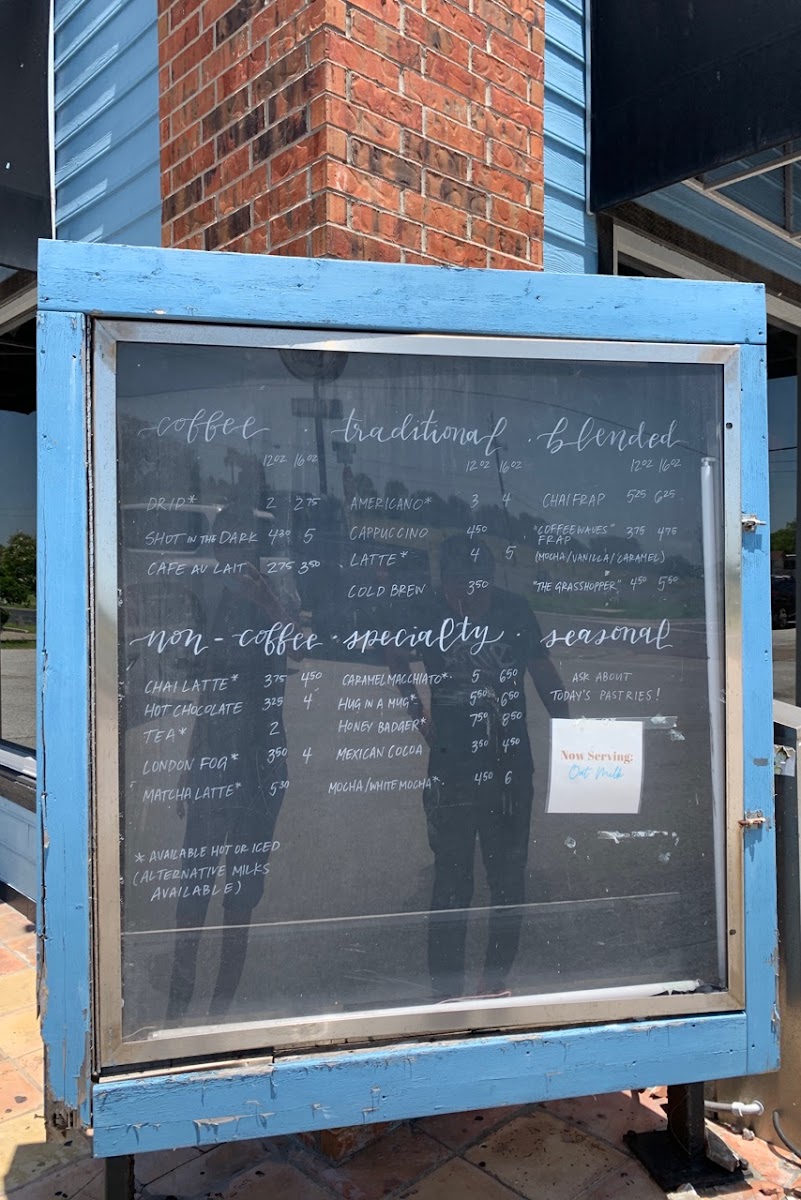 coffee · traditional · blended
12oz 16oz 12oz 16oz 12oz 16oz
DRIP* 2 2.75
SHOT IN THE DARK 4.30 5
CAFE AU LAIT 2.75 3.50
AMERICANO* 3 4
CAPPUCCINO 4.50
LATTE* 4 5
COLD BREW 3.50
CHAI FRAP 5.25 6.25
"COFFEE WAVES" FRAP 3.75 4.75
(MOCHA/VANILLA/CARAMEL)
"THE GRASSHOPPER" 4.50 5.50
non-coffee · specialty · seasonal
CHAI LATTE* 3.75 4.50
HOT CHOCOLATE 3.25 4
TEA* 2
LONDON FOG* 3.50 4
MATCHA LATTE* 5.30
* AVAILABLE HOT OR ICED
(ALTERNATIVE MILKS
AVAILABLE)
CARAMEL MACCHIATO* 5 6.50
HUG IN A MUG* 5.50 6.50
HONEY BADGER* 7.50 8.50
MEXICAN COCOA 3.50 4.50
MOCHA/WHITE MOCHA* 4.50 6
ASK ABOUT
TODAY'S PASTRIES!
Now Serving:
Oat Milk